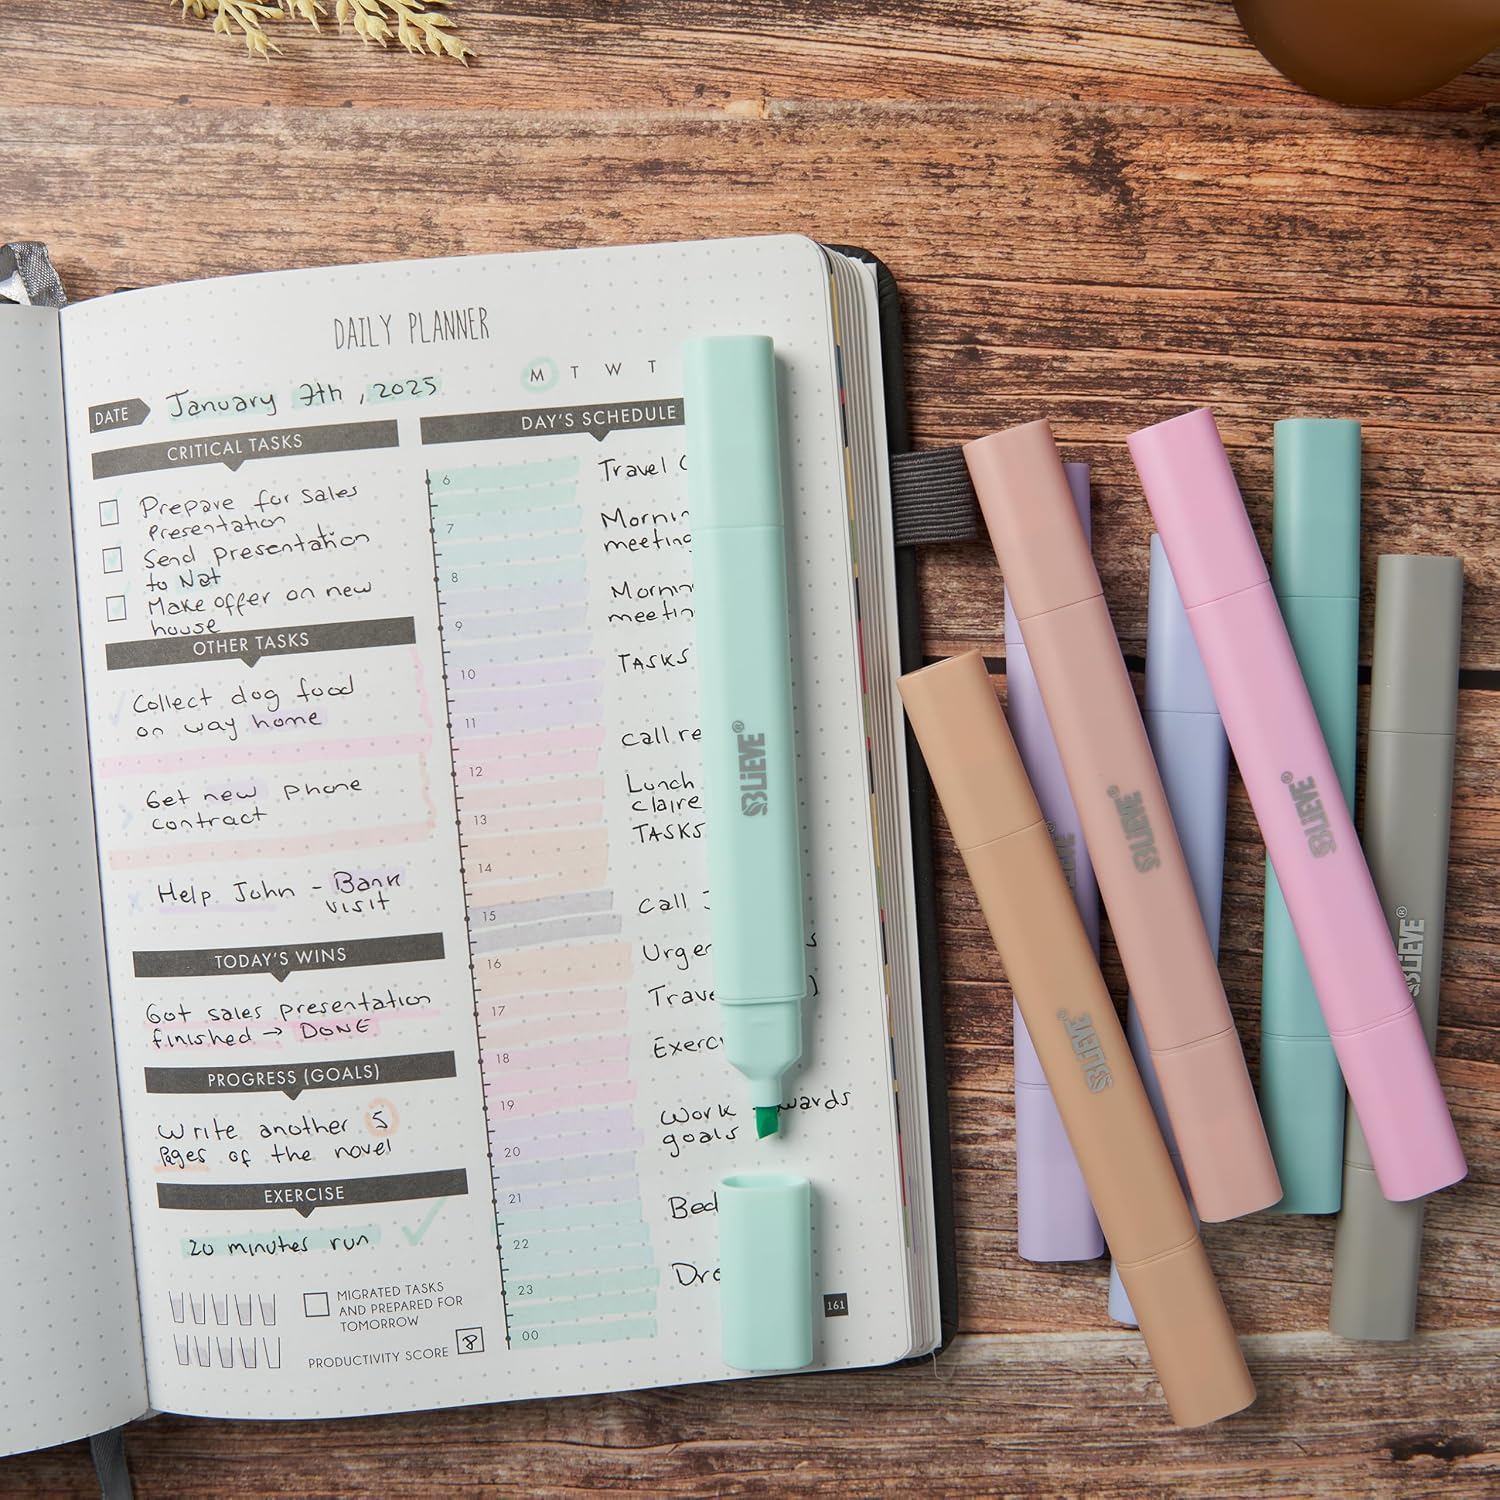 DAILY PLANNER
DATE January 7th, 2025
M T W T
CRITICAL TASKS
Prepare for sales
presentation
Send presentation
to Nat
Make offer on new
house
OTHER TASKS
Collect dog food
on way home
Get new phone
contract
Help John - Bank
visit
TODAY'S WINS
Got sales presentation
finished → DONE
PROGRESS (GOALS)
Write another 5
Pages of the novel
EXERCISE
20 minutes run
MIGRATED TASKS
AND PREPARED FOR
TOMORROW
PRODUCTIVITY SCORE 8
DAY'S SCHEDULE
6
7
8
9
10
11
12
13
14
15
16
17
18
19
20
21
22
23
00
Travel
meeting
meetin
TASKS
call re
Lunch
claire
TASKS
call
Work
goals
161
BLiEVE®
BLiEVE®
BLiEVE®
BLiEVE®
BLiEVE®